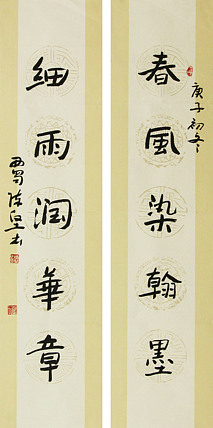 春風染翰墨
庚子初冬
細雨润華章
西蜀陈立書